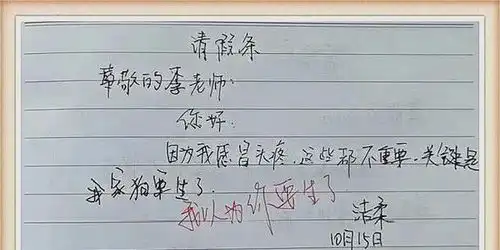 请假条
尊敬的李老师:
你好:
因为我感冒头疼,这些都不重要,关键是
我家狗要生了
我以为你要生了
洁柔
10月15日